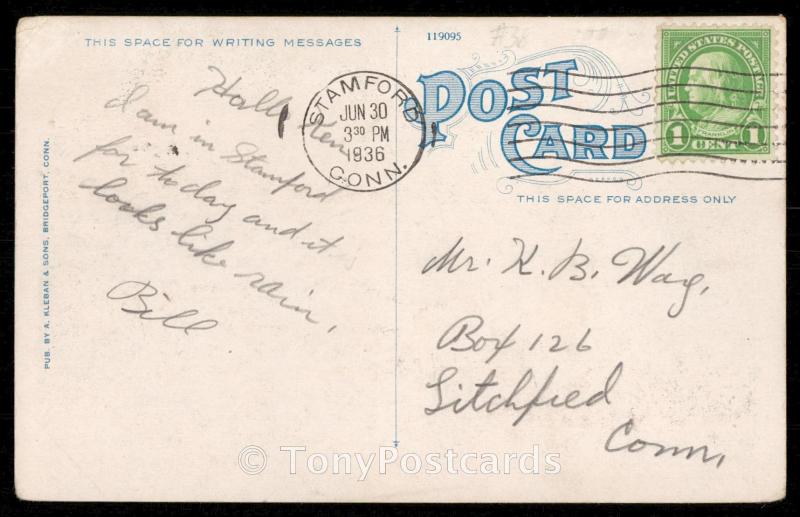 THIS SPACE FOR WRITING MESSAGES
119095
POST
CARD
THIS SPACE FOR ADDRESS ONLY
STAMFORD
JUN 30
3 30 PM
1936
CONN.
UNITED STATES POSTAGE
FRANKLIN
1 CENT 1
Hallo Ken
I am in Stamford
for to day and it
looks like rain,
Bill
Mr. K. B. Way,
Box 126
Litchfied
Conn,
PUB. BY A. KLEBAN & SONS, BRIDGEPORT, CONN.
© TonyPostcards